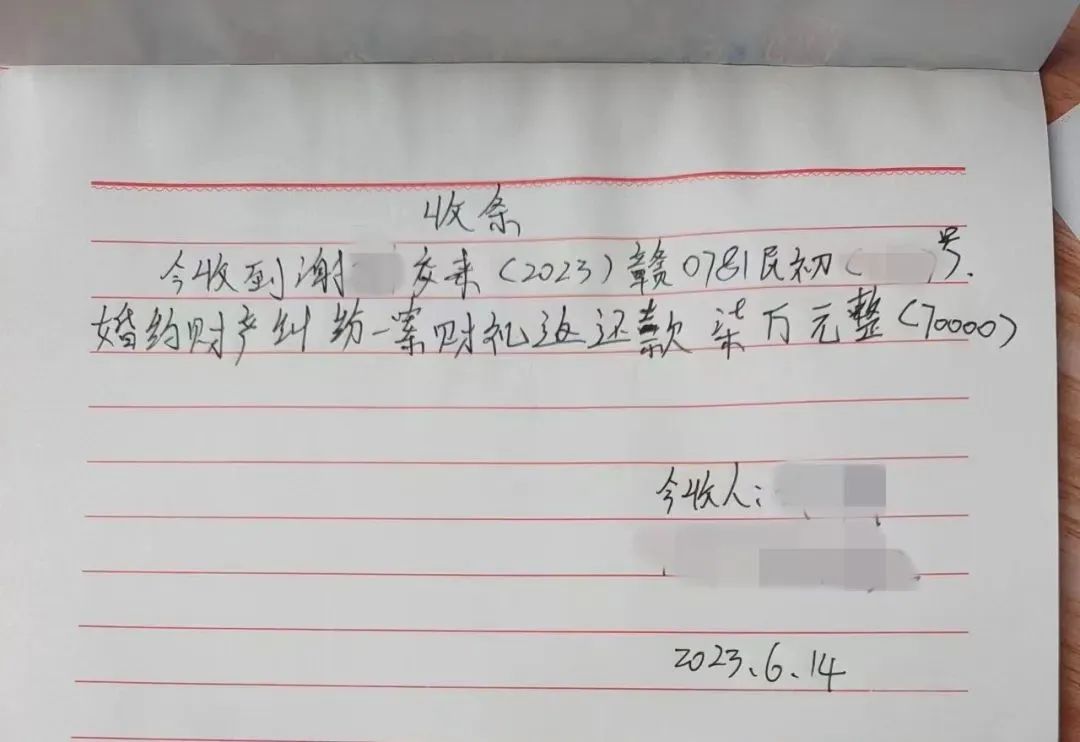 收条
今收到谢 交来(2023)赣0781民初( )号.
婚约财产纠纷一案财礼返还款柒万元整(70000)
今收人:
2023.6.14